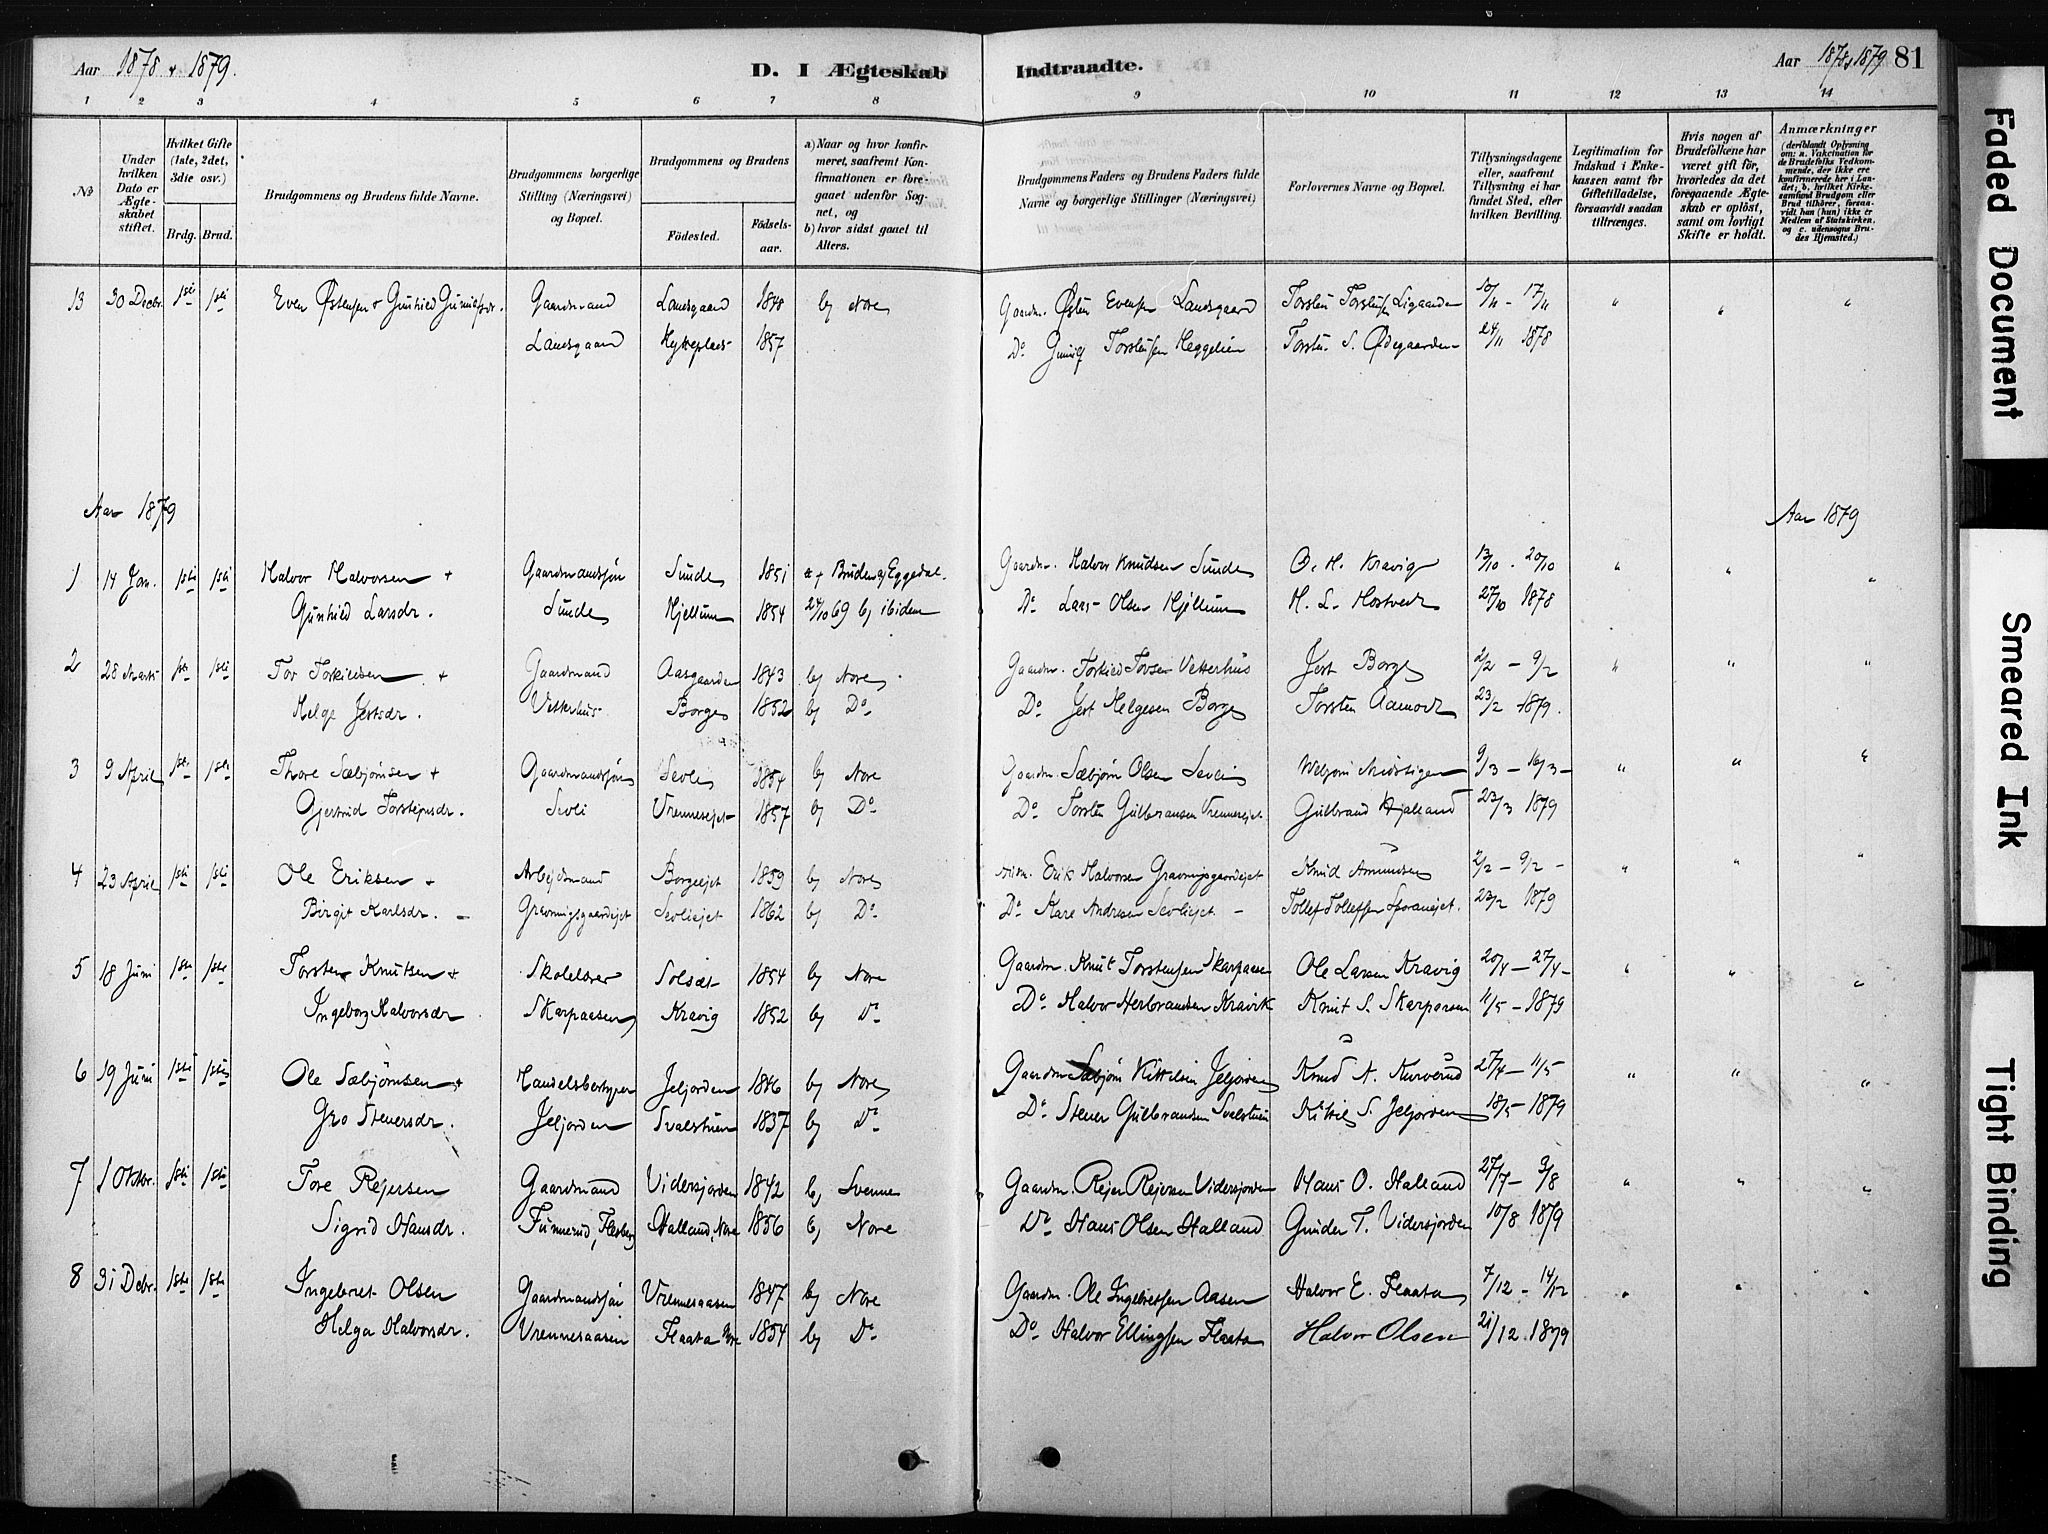 Aar 1878 & 1879.
D. I Ægteskab Indtraadte.
Aar 1878 & 1879 81
1 2 3 4 5 6 7 8 9 10 11 12 13 14
№
Under hvilken Dato er Ægteskabet stiftet.
Hvilket Gifte (1ste, 2det, 3die osv.)
Brdg. Brud.
Brudgommens og Brudens fulde Navne.
Brudgommens borgerlige Stilling (Næringsvei) og Bopæl.
Brudgommens og Brudens
Fødested. Fødsels-aar.
a) Naar og hvor konfirmeret, saafremt Konfirmationen er foregaaet udenfor Sognet, og
b) hvor sidst gaaet til Alters.
Brudgommens Faders og Brudens Faders fulde Navne og borgerlige Stillinger (Næringsvei)
Forlovernes Navne og Bopæl.
Tillysningsdagene eller, saafremt Tillysning ei har fundet Sted, efter hvilken Bevilling.
Legitimation for Indskud i Enkekassen samt for Giftetilladelse, forsaavidt saadan tiltrænges.
Hvis nogen af Brudefolkene har været gift før, hvorledes da det foregaaende Ægteskab er opløst, samt om lovligt Skifte er holdt.
Anmærkninger (deriblandt Oplysning om: a. Vakcination for de Brudefolks Vedkommende, der ikke ere konfirmerede her i Landet; b. hvilket Kirkesamfund Brudgom eller Brud tilhører, forsaavidt han (hun) ikke er Medlem af Statskirken, og c. udensogns Brudes Hjemsted.)
13 30 Decbr. 1ste 1ste Even Østensen & Gunhild Gunulfsdr. Gaardmand Landsgaard 1848 b) Nore Gaardm. Østen Evensen Landsgaard Torsten Torstensen Ligaarden 10/11 - 17/11 " " "
Landsgaard Hytteplads 1857 Do Gunulf Torstensen Heggelien Torsten S. Ødegaarden 24/11 1878
Aar 1879 Aar 1879
1 14 Jan. 1ste 1ste Halvor Halvorsen + Gaardmandssøn Sunde 1851 a + Bruden af Eggedal. Gaardm. Halvor Knudsen Sunde O. H. Kravig 13/10 - 20/10 " " "
Gunhild Larsdr. Sunde Hjellum 1854 24/10 69 b) ibidem Do Lars Olsen Hjellum H. L. Hostvedt 27/10 1878
2 28 Marts 1ste 1ste Tov Torkildsen + Gaardmand Aasgaarden 1843 b) Nore Gaardm. Torkild Tovsen Vetterhus Jest Borge 2/2 - 9/2 " " "
Helge Jestsdr. Vetterhus Borge 1852 b) Do Do Jest Helgesen Borge Torsten Aamodt 23/2 1879.
3 9 April 1ste 1ste Thore Sæbjørnsen + Gaardmandssøn Sevli 1854 b) Nore Gaardm. Sæbjørn Olsen Sevli 9/3 - 16/3 - " " "
Gjertrud Torstensdr. Sevli Vrenneeiet 1857 b) Do Do Torsten Gulbransen Vrenneeiet Gulbrand Hjalland 23/3 1879
4 23 April 1ste 1ste Ole Eriksen + Arbeidsmand Borgeeiet 1859 b) Nore Arbm. Erik Halvorsen Gravningsgaardeiet Knud Amundsen 2/2 - 9/2 - " " "
Birgit Karlsdr. - Gravningsgaardeiet Sevlieiet 1862 b) Do Do Kare Andresen Sevlieiet - Tollef Tollefsen Sporaneiet. 23/2 1879
5 18 Juni 1ste 1ste Torsten Knutsen + Skolelærer Solsæt 1854 b) Nore Gaardm. Knut Torstensen Skarpaasen Ole Larsen Kravig 20/4 - 27/4 - " " "
Ingeborg Halvorsdr Skarpaasen Kravig 1852 b) Do Do Halvor Herbrandsen Kravik Knut S. Skarpaasen 11/5 - 1879
6 19 Juni 1ste 1ste Ole Sæbjørnsen + Handelsbestyrer Jeljorden 1846 b) Nore Gaardm. Sæbjørn Kittilsen Jeljorden Knud A. Kurverud 27/4 - 11/5 " " "
Gro Steuersdr. Jeljorden Svalstuen 1837 b) Do Do Steuer Gulbrandsen Svalstuen Kittil S. Jeljorden 18/5 - 1879
7 1 Oktbr. 1ste 1ste Tore Rejersen Gaardmand Vidersjorden 1842 b) Svenne Gaardm. Rejer Rejersen Vidersjorden Hans O. Halland 27/7 - 3/8 " " "
Sigrid Hansdr. Funnerud, Flesberg Halland, Nore 1856 b) Nore Do Hans Olsen Halland Gunder T. Vidersjorden 10/8 1879
8 31 Decbr. 1ste 1ste Ingebret Olsen Gaardmandssøn Vrenneaasen 1847 b) Nore Gaardm. Ole Ingebretsen Aasen Halvor E. Flaata 7/12 - 14/12 " " "
Helga Halvorsdr. Vrenneaasen Flaata Nore 1854 b) Do Do Halvor Ellingsen Flaata Halvor Olsen 21/12 1879
Faded Document
Smeared Ink
Tight Binding